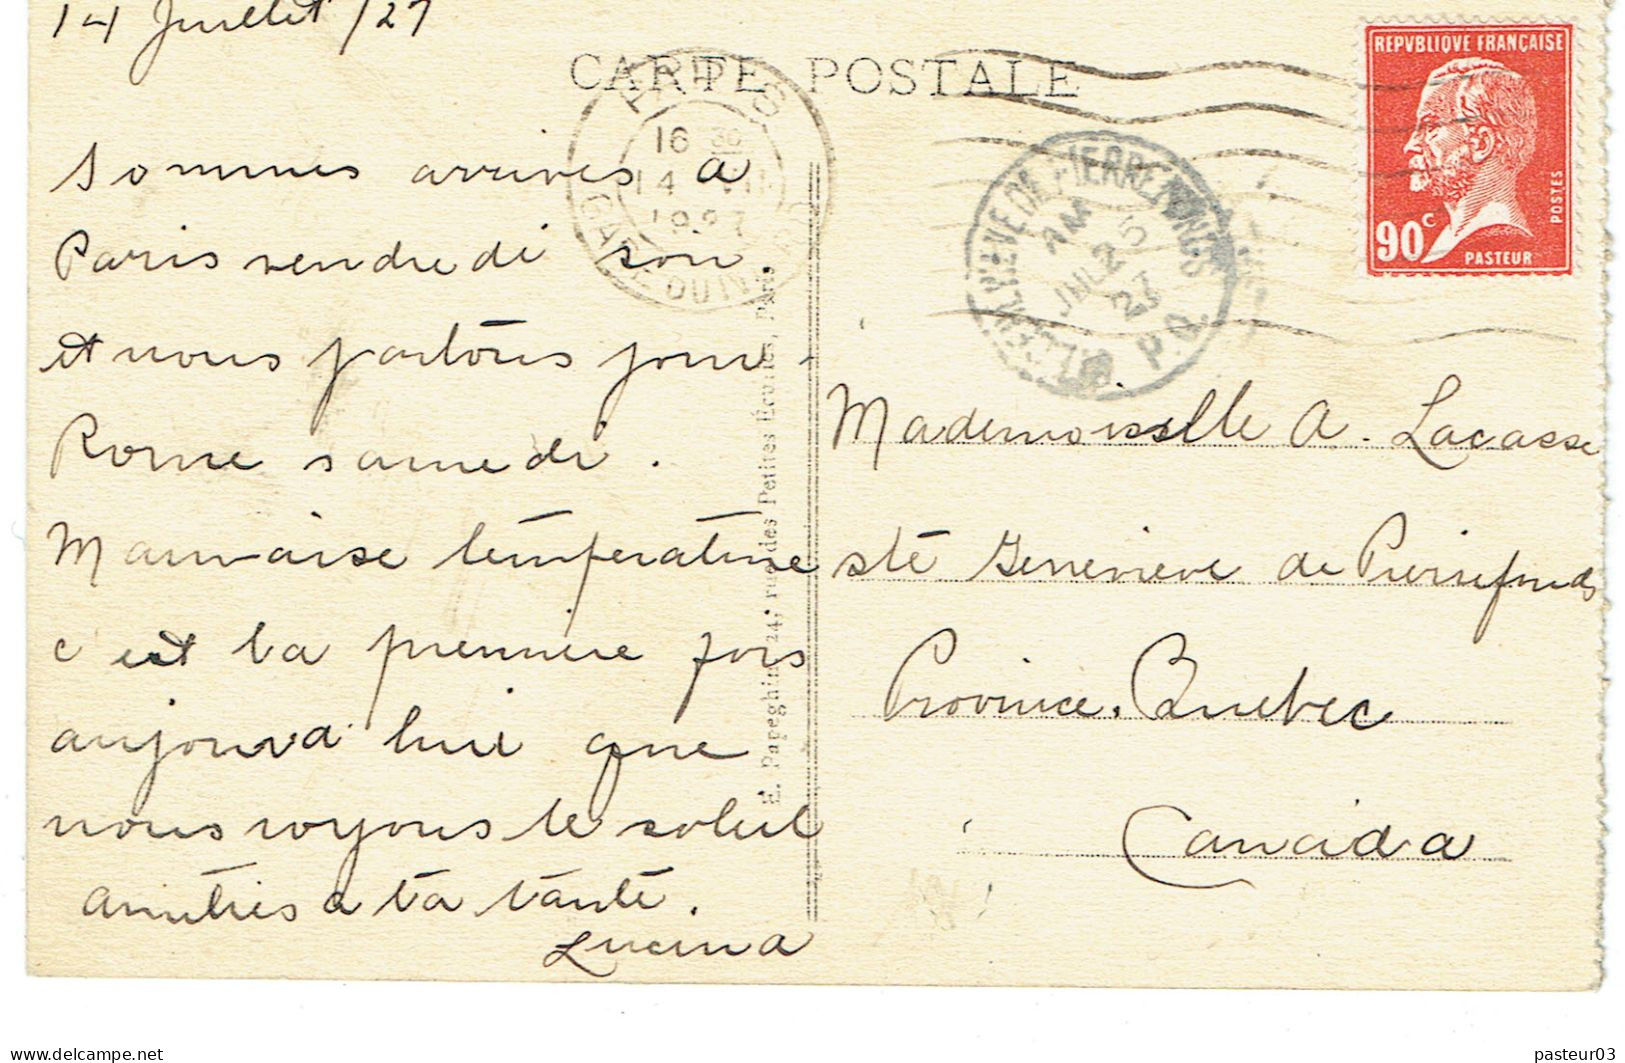 14 Juillet /27
CARTE POSTALE
REPVBLIQVE FRANÇAISE
90c
POSTES
PASTEUR
PARIS
16 30
14 VII
1927
GARE DU NORD
STE GENEVIEVE DE PIERREFONDS
AM
JUL 25
27
P.Q.
Sommes arrives a
Paris vendredi soir
et nous partons pour
Rome samedi.
Mauvaise température
c'est la premiere fois
aujourd hui que
nous voyons le soleil
amitiés a ta tante.
Lucina
E. Papeghin, 24, rue des Petites Écuries, Paris.
Mademoiselle A. Lacasse
Ste Genevieve de Pierrefonds
Province. Quebec
Canada
pasteur03